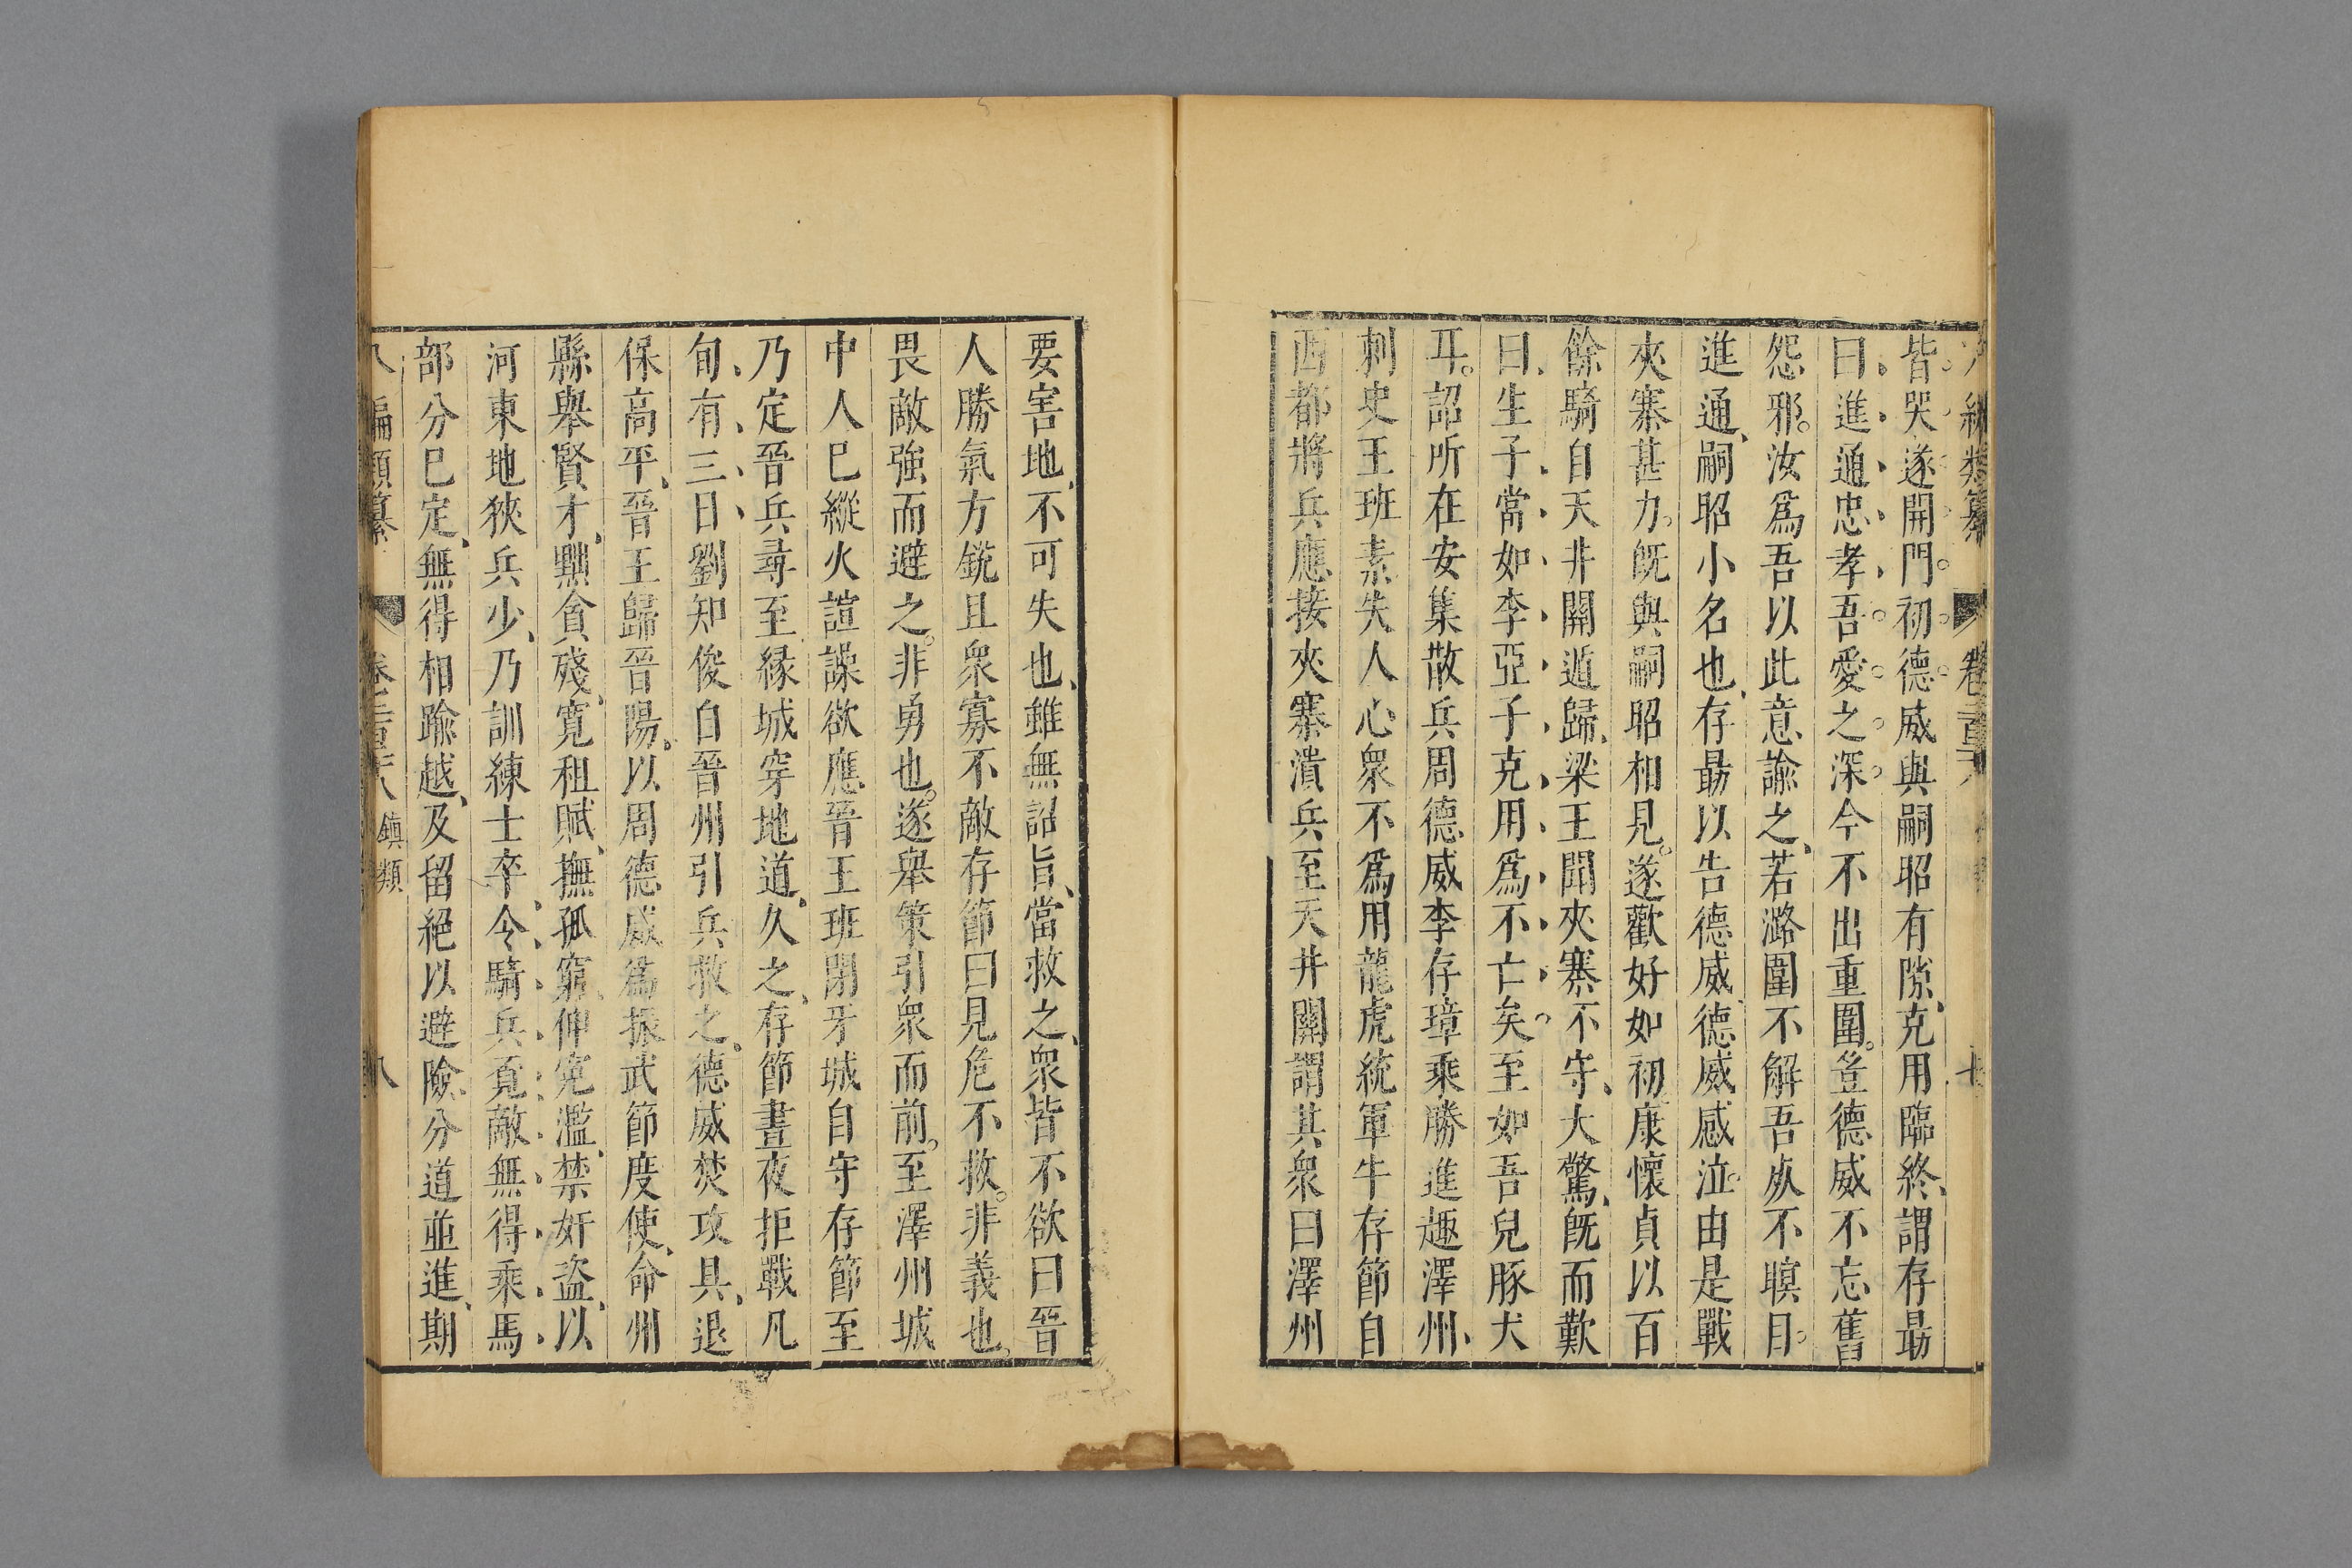 皆哭遂開門初德威與嗣昭有隙克用臨終謂存勗
曰進通忠孝吾愛之深今不出重圍豈德威不忘舊
怨邪汝爲吾以此意諭之若潞圍不解吾死不瞑目
進通嗣昭小名也存勗以告德威德威感泣由是戰
夾寨甚力旣與嗣昭相見遂歡好如初康懷貞以百
餘騎自天井關遁歸梁王聞夾寨不守大驚旣而歎
曰生子當如李亞子克用爲不亡矣至如吾兒豚犬
耳詔所在安集散兵周德威李存璋乘勝進趣澤州
刺史王班素失人心衆不爲用龍虎統軍牛存節自
西都將兵應接夾寨潰兵至天井關謂其衆曰澤州
要害地不可失也雖無詔旨當救之衆皆不欲曰晉
人勝氣方銳且衆寡不敵存節曰見危不救非義也
畏敵強而避之非勇也遂舉策引衆而前至澤州城
中人已縱火諠譟欲應晉王班閉牙城自守存節至
乃定晉兵尋至緣城穿地道久之存節晝夜拒戰凡
旬有三日劉知俊自晉州引兵救之德威焚攻具退
保高平晉王歸晉陽以周德威爲振武節度使命州
縣舉賢才黜貪殘寬租賦撫孤窮伸冤濫禁奸盜以
河東地狹兵少乃訓練士卒令騎兵不見敵無得乘馬
部分已定無得相踰越及留絕以避險分道並進期
八編類纂 卷 鎮類 八